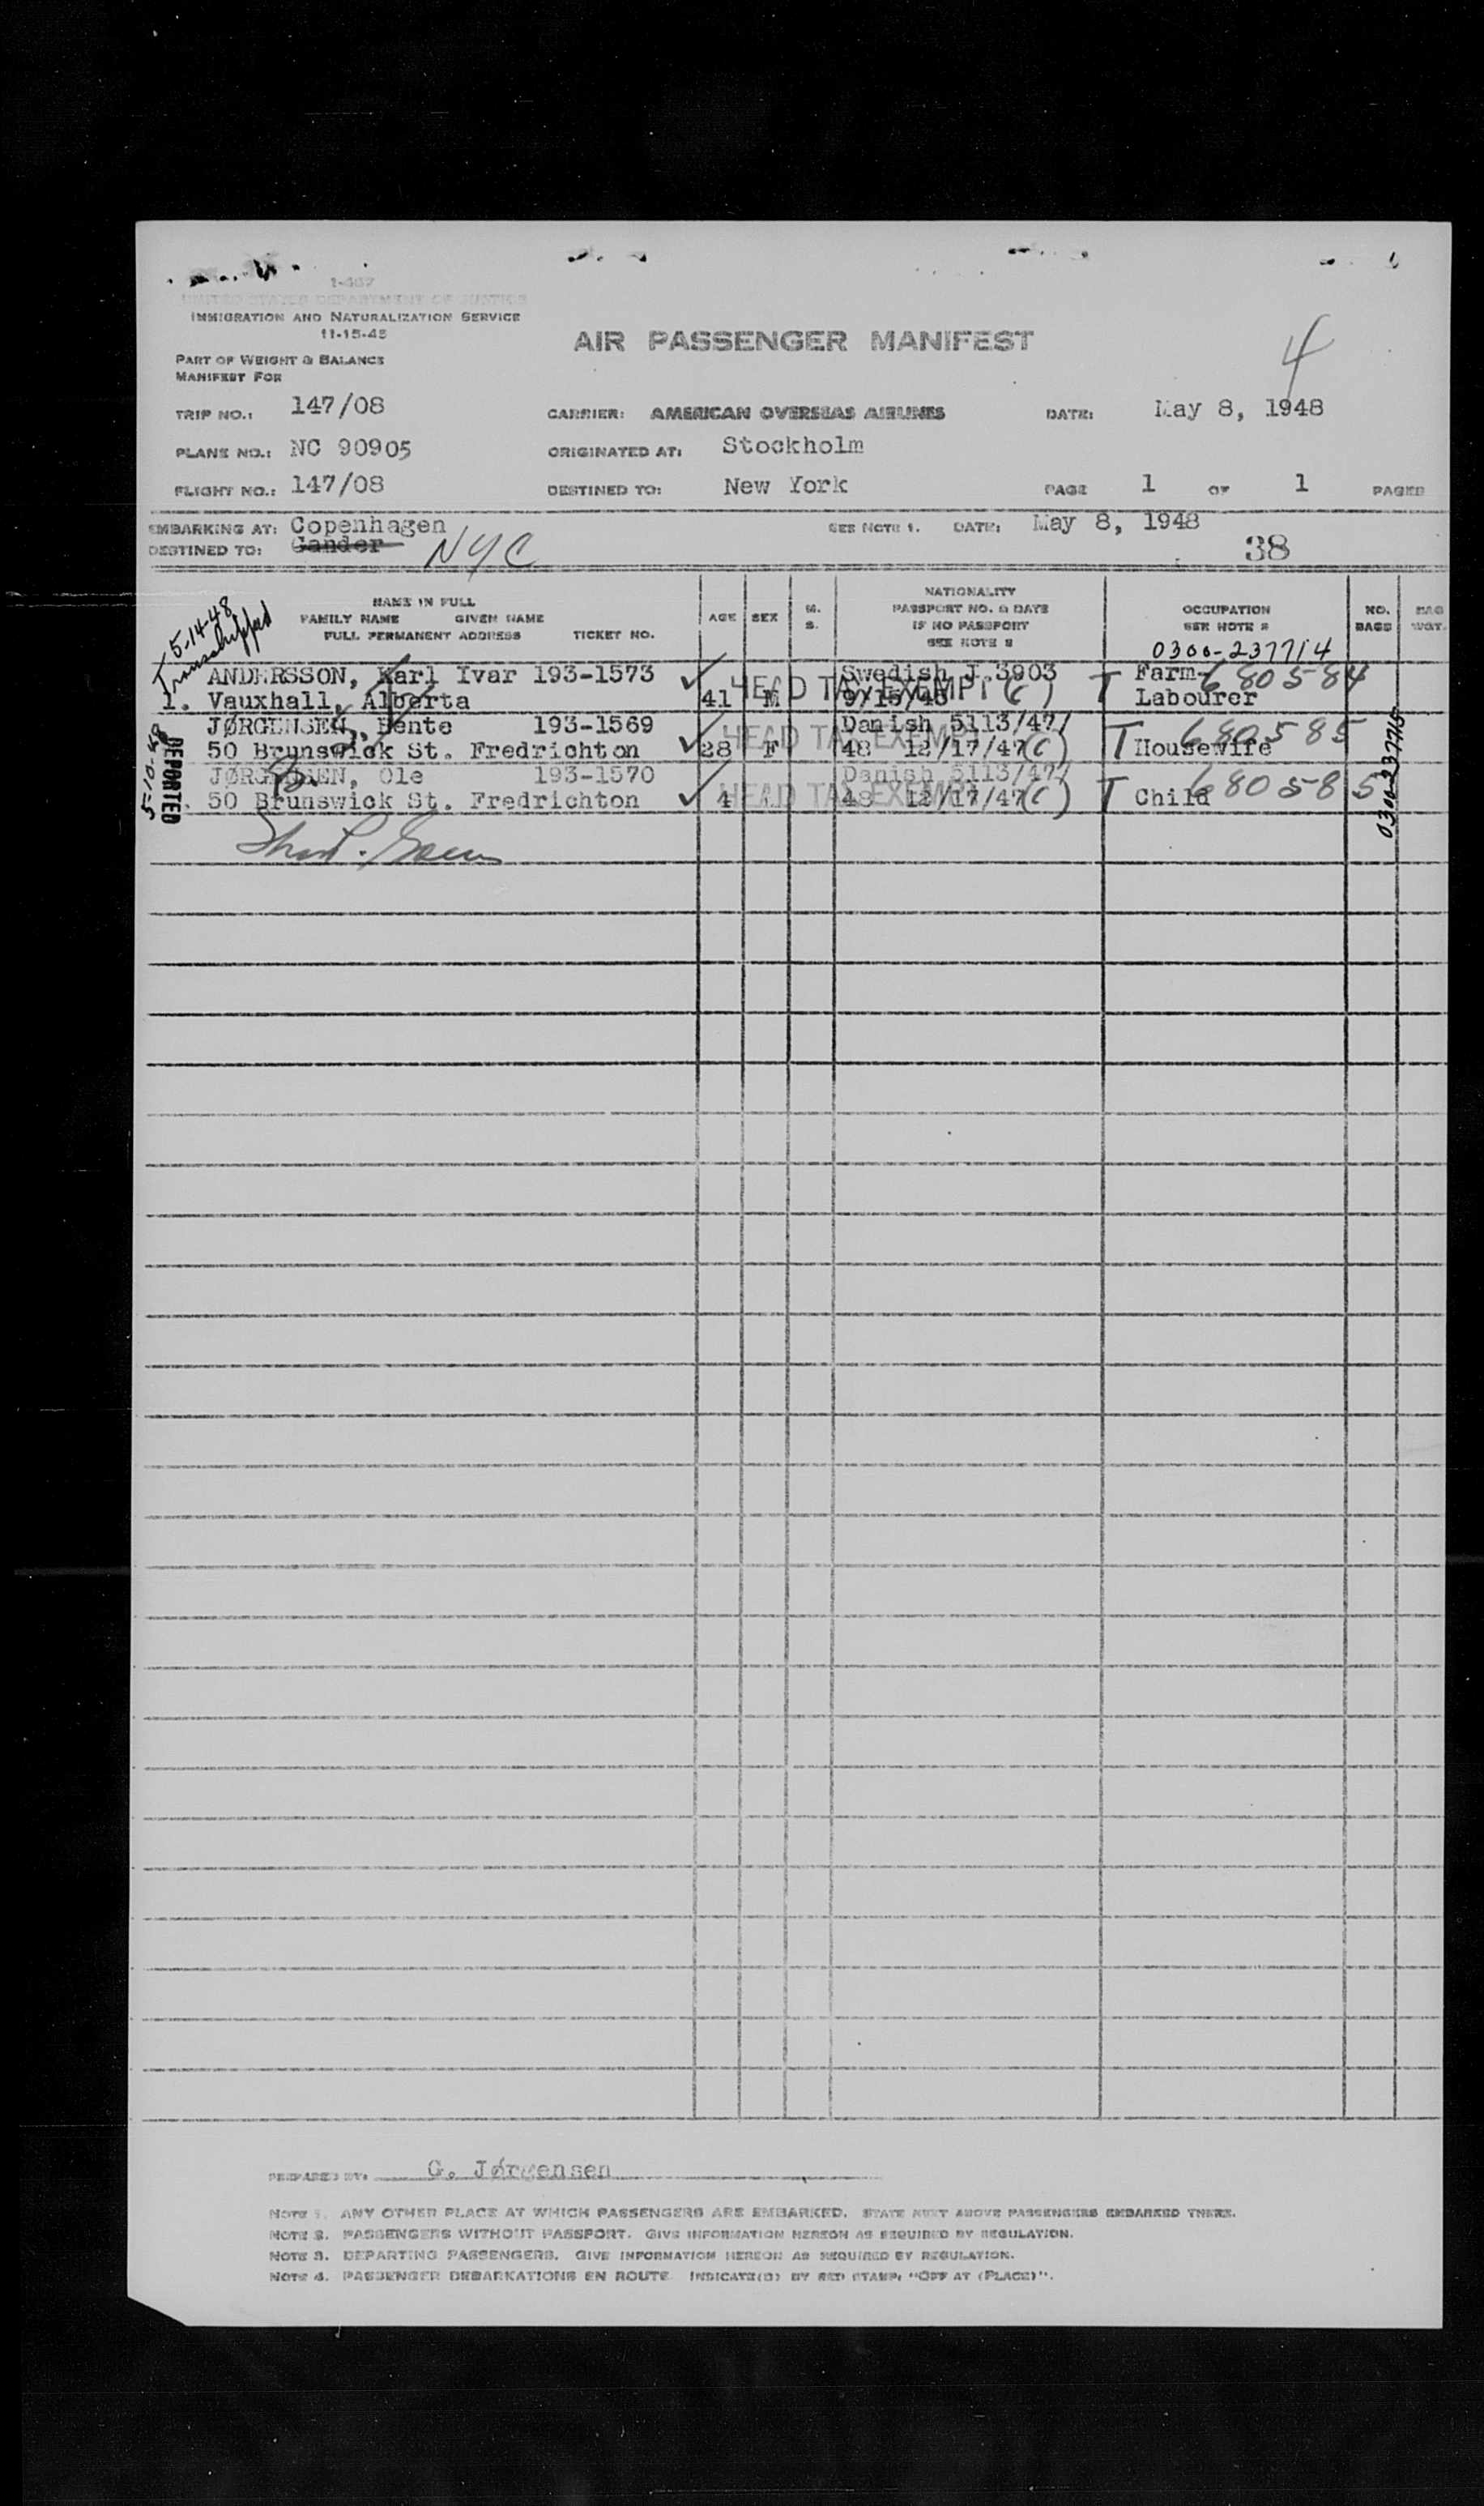 1-467
UNITED STATES DEPARTMENT OF JUSTICE
IMMIGRATION AND NATURALIZATION SERVICE
11-15-45
AIR PASSENGER MANIFEST
4
PART OF WEIGHT & BALANCE
MANIFEST FOR
TRIP NO.: 147/08 CARRIER: AMERICAN OVERSEAS AIRLINES DATE: May 8, 1948
PLANE NO.: NC 90905 ORIGINATED AT: Stockholm
FLIGHT NO.: 147/08 DESTINED TO: New York PAGE 1 OF 1 PAGES
EMBARKING AT: Copenhagen SEE NOTE 1. DATE: May 8, 1948
DESTINED TO: Gander NYC 38
NAME IN FULL
FAMILY NAME GIVEN NAME
FULL PERMANENT ADDRESS TICKET NO.
AGE SEX M. S.
NATIONALITY
PASSPORT NO. & DATE
IF NO PASSPORT
SEE NOTE 2
OCCUPATION
SEE NOTE 2
NO. BAGS
BAG WGT.
0300-237714
5-14-48
Transshipped
ANDERSSON, Karl Ivar 193-1573 Swedish J.3903 T Farm- 680584
1. Vauxhall, Alberta 41 M HEAD TAX EXEMPT (C) Labourer
JØRGENSEN, Bente 193-1569 Danish 5113/47/ T 680585
50 Brunswick St. Fredrichton 28 F HEAD TAX EXEMPT 48 12/17/47 (C) Housewife
JØRGENSEN, Ole 193-1570 Danish 5113/47/
50 Brunswick St. Fredrichton 4 HEAD TAX EXEMPT 48 12/17/47 (C) T Child 680585
DEPORTED
5-10-48
0300-237715
PREPARED BY: G. Jørgensen
NOTE 1. ANY OTHER PLACE AT WHICH PASSENGERS ARE EMBARKED. STATE NEXT ABOVE PASSENGERS EMBARKED THERE.
NOTE 2. PASSENGERS WITHOUT PASSPORT. GIVE INFORMATION HEREON AS REQUIRED BY REGULATION.
NOTE 3. DEPARTING PASSENGERS. GIVE INFORMATION HEREON AS REQUIRED BY REGULATION.
NOTE 4. PASSENGER DEBARKATIONS EN ROUTE INDICATE(D) BY RED STAMP: "OFF AT (PLACE)".